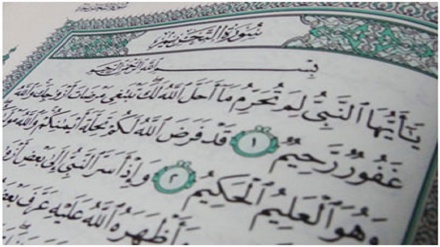 سُورَةُ التَّحْرِيمِ
بِسْمِ اللَّهِ الرَّحْمَٰنِ الرَّحِيمِ
يَٰٓأَيُّهَا ٱلنَّبِىُّ لِمَ تُحَرِّمُ مَآ أَحَلَّ ٱللَّهُ لَكَ تَبْتَغِى مَرْضَاتَ أَزْوَٰجِكَ وَٱللَّهُ
غَفُورٌ رَّحِيمٌ ١ قَدْ فَرَضَ ٱللَّهُ لَكُمْ تَحِلَّةَ أَيْمَٰنِكُمْ وَٱللَّهُ
وَهُوَ ٱلْعَلِيمُ ٱلْحَكِيمُ ٢ وَإِذْ أَسَرَّ ٱلنَّبِىُّ إِلَىٰ بَعْضِ
وَأَظْهَرَهُ ٱللَّهُ عَلَيْهِ عَرَّفَ بَعْضَ